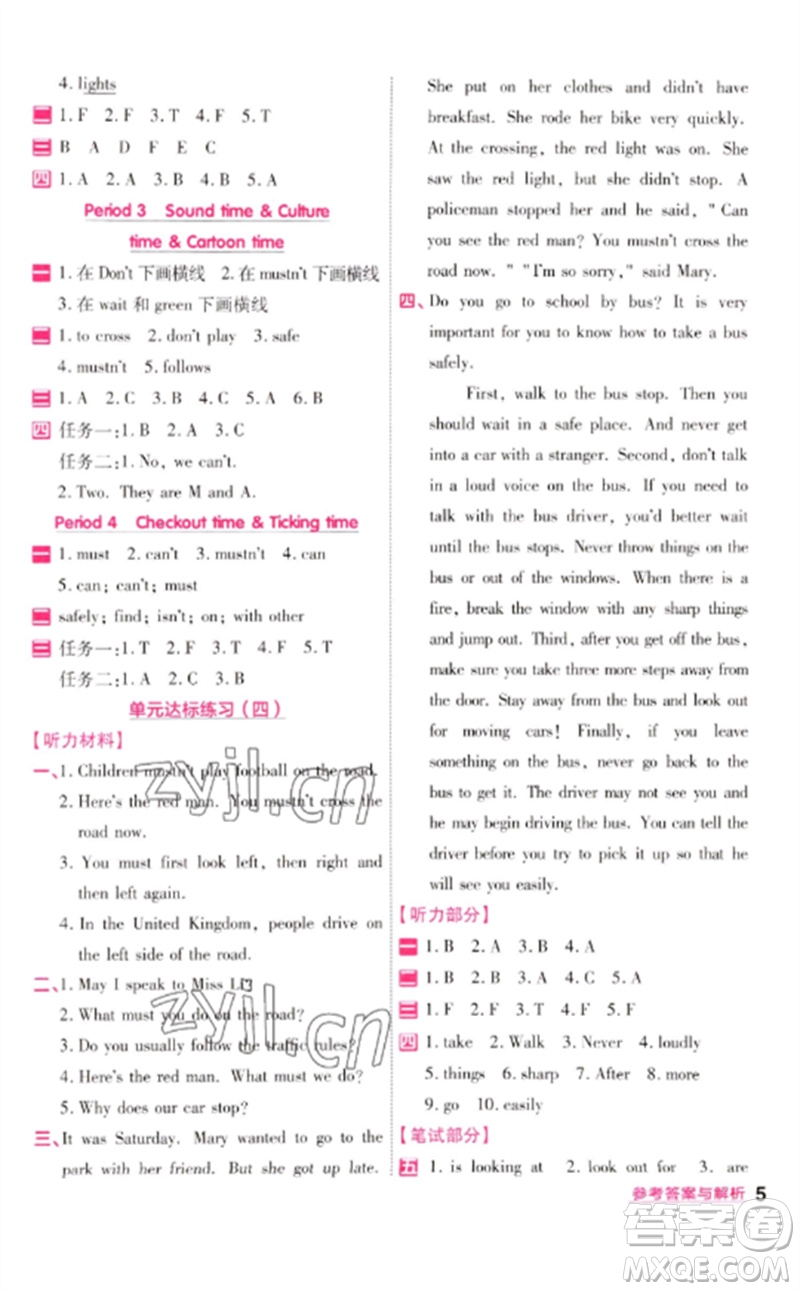 4. lights
二 1. F 2. F 3. T 4. F 5. T
三 B A D F E C
四 1. A 2. A 3. B 4. B 5. A
Period 3 Sound time & Culture
time & Cartoon time
一 1. 在 Don't 下画横线 2. 在 mustn't 下画横线
3. 在 wait 和 green 下画横线
二 1. to cross 2. don't play 3. safe
4. mustn't 5. follows
三 1. A 2. C 3. B 4. A 5. A 6. B
四 任务一:1. B 2. A 3. C
任务二:1. No, we can't.
2. Two. They are M and A.
Period 4 Checkout time & Ticking time
一 1. must 2. can't 3. mustn't 4. can
5. can; can't; must
二 safely; find; isn't; on; with other
三 任务一:1. T 2. F 3. F 4. F 5. T
任务二:1. A 2. C 3. B
单元达标练习(四)
【听力材料】
一、1. Children mustn't play football on the road.
2. Here's the red man. You mustn't cross the
road now.
3. You must first look left, then right and
then left again.
4. In the United Kingdom, people drive on
the left side of the road.
二、1. May I speak to Miss Li?
2. What must you do on the road?
3. Do you usually follow the traffic rules?
4. Here's the red man. What must we do?
5. Why does our car stop?
三、It was Saturday. Mary wanted to go to the
park with her friend. But she got up late.
She put on her clothes and didn't have
breakfast. She rode her bike very quickly.
At the crossing, the red light was on. She
saw the red light, but she didn't stop. A
policeman stopped her and he said, "Can
you see the red man? You mustn't cross the
road now." "I'm so sorry," said Mary.
四、Do you go to school by bus? It is very
important for you to know how to take a bus
safely.
First, walk to the bus stop. Then you
should wait in a safe place. And never get
into a car with a stranger. Second, don't talk
in a loud voice on the bus. If you need to
talk with the bus driver, you'd better wait
until the bus stops. Never throw things on the
bus or out of the windows. When there is a
fire, break the window with any sharp things
and jump out. Third, after you get off the bus,
make sure you take three more steps away from
the door. Stay away from the bus and look out
for moving cars! Finally, if you leave
something on the bus, never go back to the
bus to get it. The driver may not see you and
he may begin driving the bus. You can tell the
driver before you try to pick it up so that he
will see you easily.
【听力部分】
一 1. B 2. A 3. B 4. A
二 1. B 2. B 3. A 4. C 5. A
三 1. F 2. F 3. T 4. F 5. F
四 1. take 2. Walk 3. Never 4. loudly
5. things 6. sharp 7. After 8. more
9. go 10. easily
【笔试部分】
五 1. is looking at 2. look out for 3. are
参考答案与解析 5
zyjl.cn
zyjl.cn
答案卷
MXQE.COM